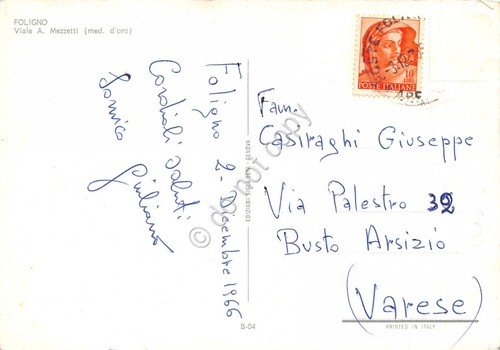 FOLIGNO
Viale A. Mezzetti (med. d'oro)
Foligno 2-Dicembre 1966
Cordiali saluti
Giuliano
10
POSTE ITALIANE
Fam.
Casiraghi Giuseppe
Via Palestro 32
Busto Arsizio
(Varese)
EDIZIONI
GENOVA
B-04
PRINTED IN ITALY
© do not copy